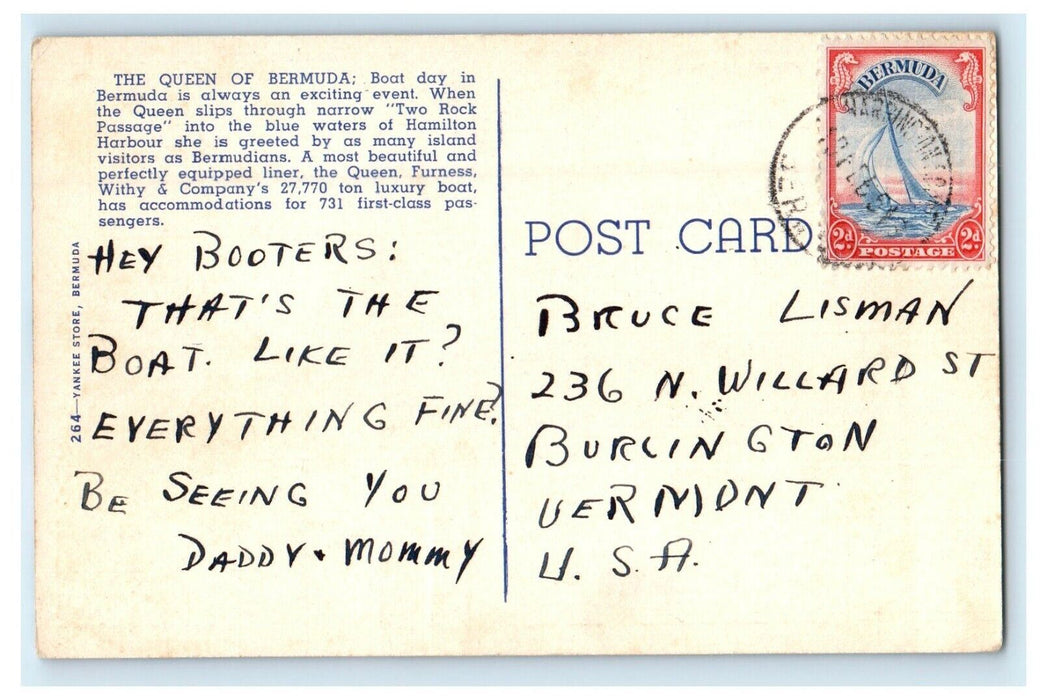 THE QUEEN OF BERMUDA; Boat day in
Bermuda is always an exciting event. When
the Queen slips through narrow "Two Rock
Passage" into the blue waters of Hamilton
Harbour she is greeted by as many island
visitors as Bermudians. A most beautiful and
perfectly equipped liner, the Queen, Furness,
Withy & Company's 27,770 ton luxury boat,
has accommodations for 731 first-class pas-
sengers.
264—YANKEE STORE, BERMUDA
HEY BOOTERS:
THAT'S THE
BOAT. LIKE IT?
EVERYTHING FINE?
BE SEEING YOU
DADDY + MOMMY
BERMUDA
2d POSTAGE 2d
POST CARD
BRUCE LISMAN
236 N. WILLARD ST
BURLINGTON
VERMONT
U. S. A.